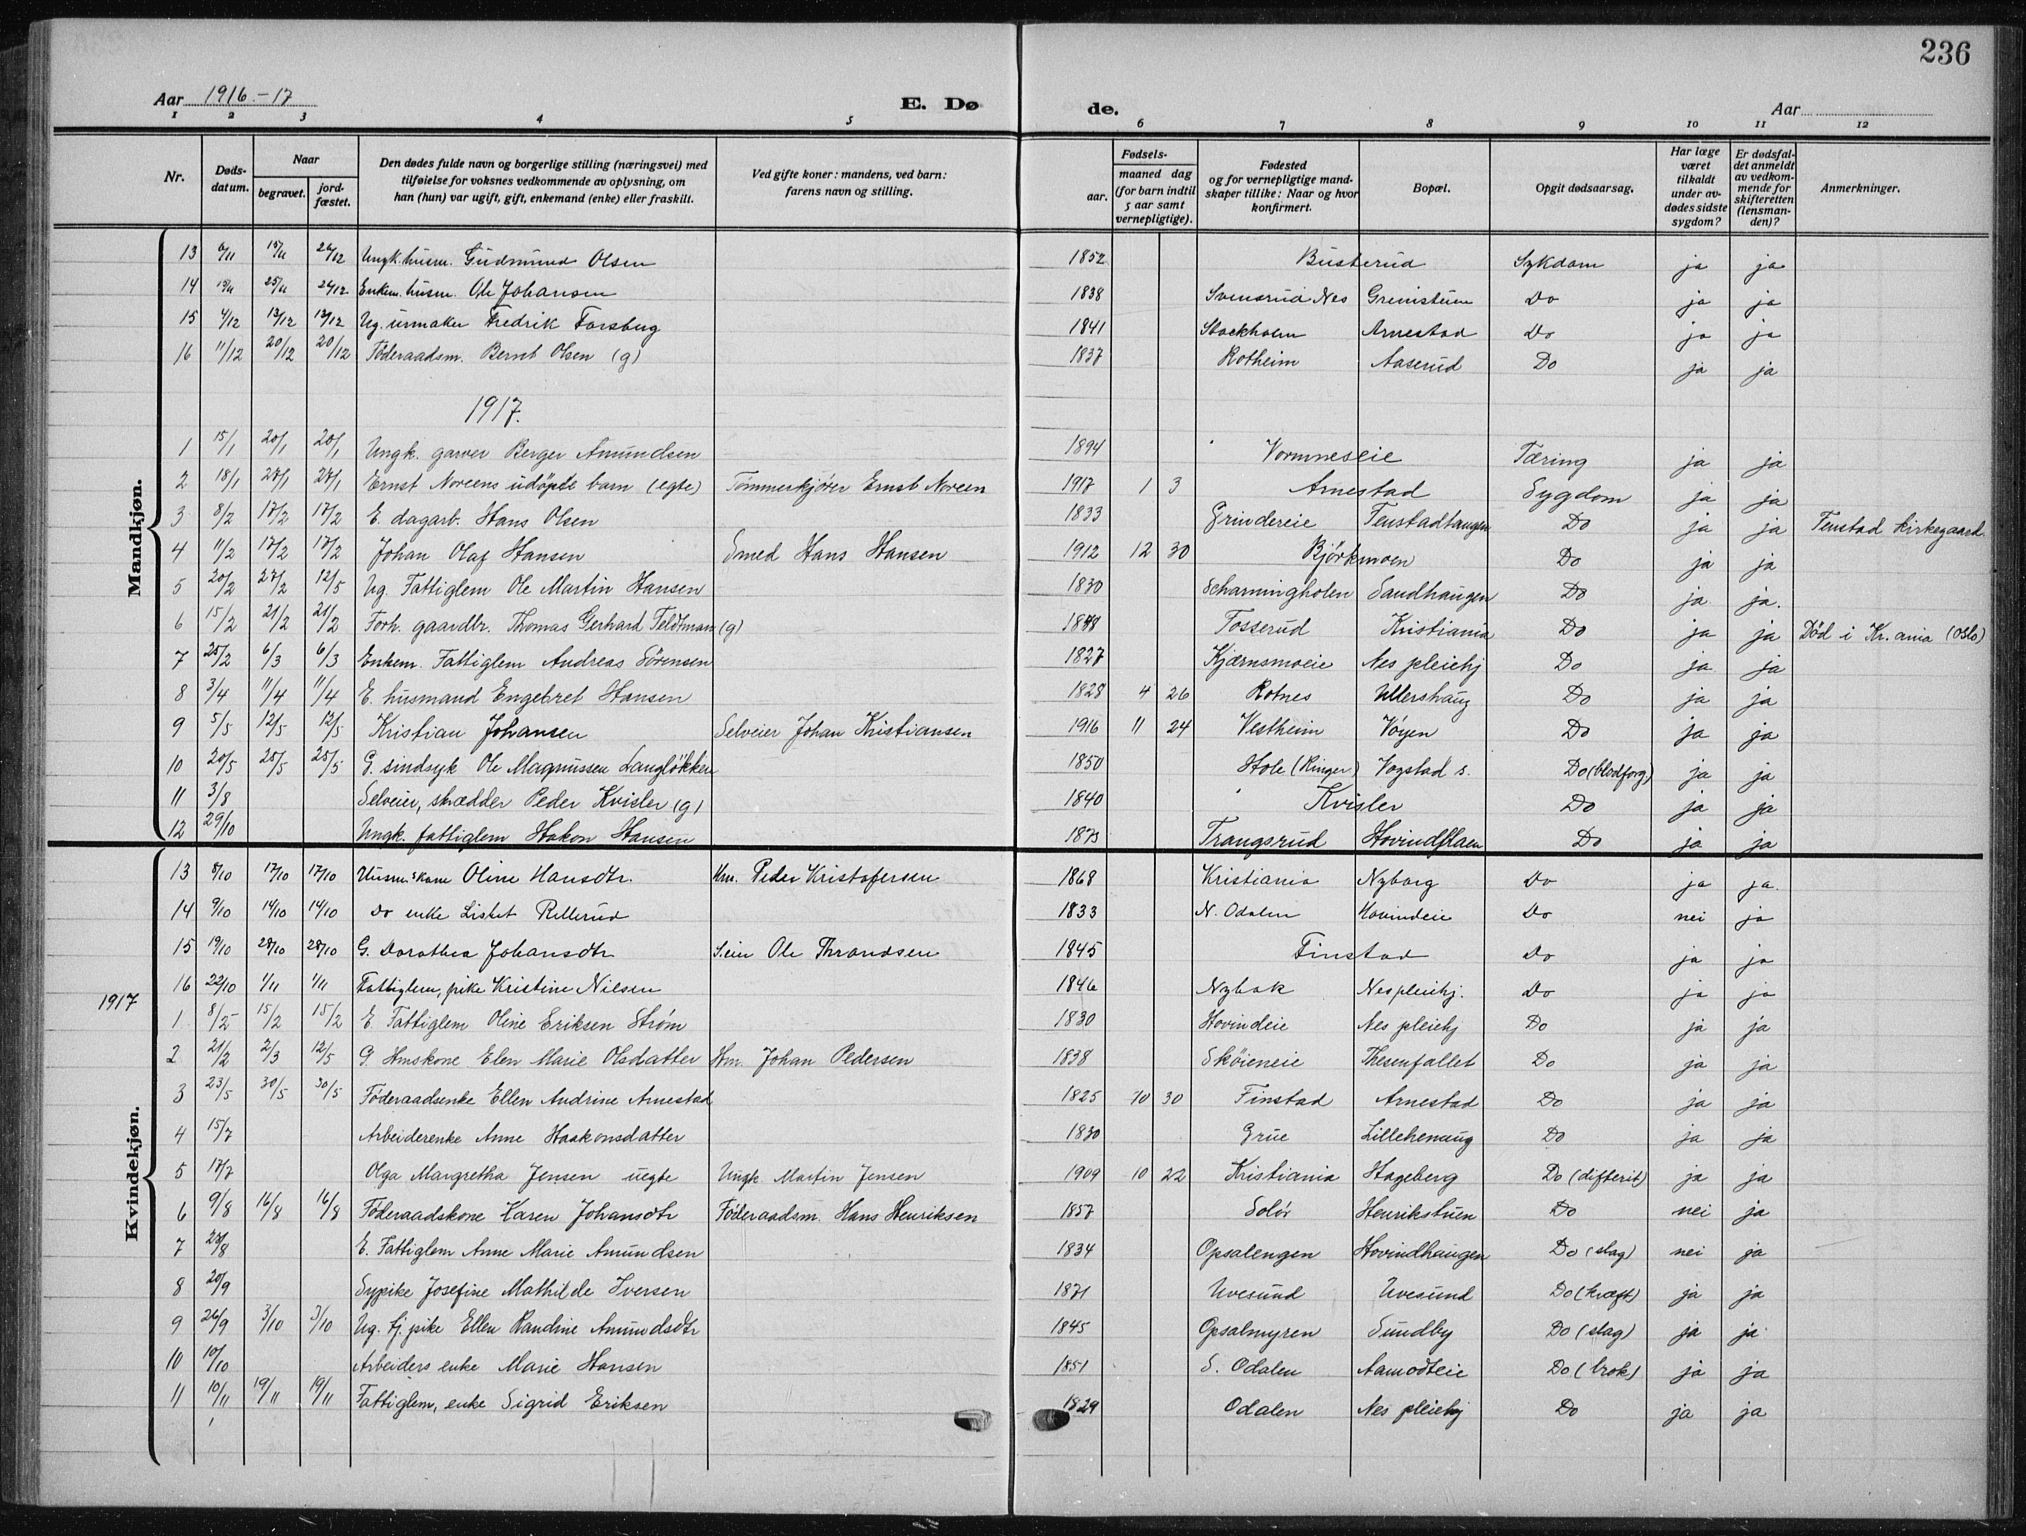 236
Aar 1916.-17
E. Dø
de.
Aar
1 2 3 4 5 6 7 8 9 10 11 12
Nr.
Døds-datum.
Naar
begravet.
jord-fæstet.
Den dødes fulde navn og borgerlige stilling (næringsvei) med tilføielse for voksnes vedkommende av oplysning, om han (hun) var ugift, gift, enkemand (enke) eller fraskilt.
Ved gifte koner: mandens, ved barn: farens navn og stilling.
Fødsels-
aar.
maaned dag (for barn indtil 5 aar samt vernepligtige).
Fødested og for vernepligtige mand-skaper tillike: Naar og hvor konfirmert.
Bopæl.
Opgit dødsaarsag.
Har læge været tilkaldt under av-dødes sidste sygdom?
Er dødsfal-det anmeldt av vedkom-mende for skifteretten (lensman-den)?
Anmerkninger.
Mandkjøn.
13 6/11 15/11 26/12 Ungk. husm. Gudmund Olsen 1852 Busterud Sykdom ja ja
14 19/11 25/11 26/12 Enkem. husm. Ole Johansen 1838 Svensrud Nes Grenistuen Do ja ja
15 4/12 13/12 13/12 Ug. urmaker Fredrik Forsberg 1841 Stockholm Arnestad Do ja ja
16 11/12 20/12 20/12 Føderaadsm. Bernt Olsen (g) 1837 Rotheim Aaserud Do ja ja
1917.
1 15/1 20/1 20/1 Ungk. garver Berger Amundsen 1894 Vormneseie Tæring ja ja
2 18/1 27/1 27/1 Ernst Noreens udøpte barn (egte) Tømmerkjører Ernst Noreen 1917 1 3 Arnestad Sygdom ja ja
3 8/2 17/2 17/2 E. dagarb. Hans Olsen 1833 Grindereie Fenstadtangen Do ja ja Fenstad kirkegaard.
4 11/2 17/2 17/2 Johan Olaf Hansen Smed Hans Hansen 1912 12 30 Bjørkmoen Do ja ja
5 20/2 27/2 12/5 Ug. Fattiglem Ole Martin Hansen 1830 Scharningholen Sandhaugen Do ja ja.
6 15/2 21/2 21/2 Forh. gaardbr. Thomas Gerhard Feldtman (g) 1848 Tosserud Kristiania Do ja ja Død i Kr.ania (Oslo)
7 25/2 6/3 6/3 Enkem. Fattiglem Andreas Sørensen 1827 Kjærnsmoeie Nes pleiehj Do ja ja
8 3/4 11/4 11/4 E. husmand Engebret Hansen 1828 4 26 Rotnes Ullershaug Do ja ja
9 5/5 12/5 12/5 Kristian Johansen Selveier Johan Kristiansen 1916 11 24 Vestheim Vøyen Do ja ja
10 20/5 25/5 25/5 G. sindsyk Ole Magnussen Langløkken 1850 Hole (Ringer) Vogstad s. Do (blodforg) ja ja
11 3/8 Selveier, skrædder Peder Kvisler (g) 1840 Kvisler Do ja ja
12 29/10 Ungk. fattiglem Hakon Hansen 1873 Trangsrud Hovindflaen Do ja ja
Kvindekjøn.
13 8/10 17/10 17/10 Husm.skone Oline Hansdtr. Hm. Peder Kristofersen 1868 Kristiania Nyborg Do ja ja.
14 9/10 14/10 14/10 Do enke Lisket Rillerud 1833 N. Odalen Hovindeie Do nei ja
15 19/10 28/10 28/10 G. Dorothea Johansdtr S.eier Ole Thrandsen 1845 Finstad Do ja ja
16 22/10 1/11 1/11 Fattiglem, pike Kristine Nilsen 1846 Nybak Nes pleiehj. Do ja ja
1917
1 8/2 15/2 15/2 E. Fattiglem Oline Eriksen Strøm 1830 Hovindeie Nes pleiehj Do ja ja
2 21/2 2/3 12/5 G. Hmskone Elen Marie Olsdatter Hm. Johan Pedersen 1838 Skøieneie Thesenfallet Do ja ja
3 23/5 30/5 30/5 Føderaadsenke Ellen Andrine Arnestad 1825 10 30 Finstad Arnestad Do ja ja
4 15/7 Arbeiderenke Anne Haakonsdatter 1830 Grue Lillehenaug Do ja ja
5 17/7 Olga Margretha Jensen uegte Ungk Martin Jensen 1909 10 22 Kristiania Hageberg Do (difterit) ja ja
6 9/8 16/8 16/8 Føderaadskone Karen Johansdtr Føderaadsm. Hans Henriksen 1857 Solør Henrikstuen Do nei ja
7 23/8 E. Fattiglem Anne Marie Amundsen 1834 Opsalengen Hovindhaugen Do (slag) nei ja
8 20/9 Sypike Josefine Mathilde Iversen 1871 Uvesund Uvesund Do (kræft) ja ja
9 26/9 3/10 3/10 Ug. tj. pike Ellen Randine Amundsdtr 1845 Opsalmyren Sundby Do (slag) ja ja
10 10/10 Arbeiders enke Marie Hansen 1851 S. Odalen Aamodteie Do (brok) ja ja
11 10/11 19/11 19/11 Fattiglem, enke Sigrid Eriksen 1829 Odalen Nes pleiehj Do ja ja